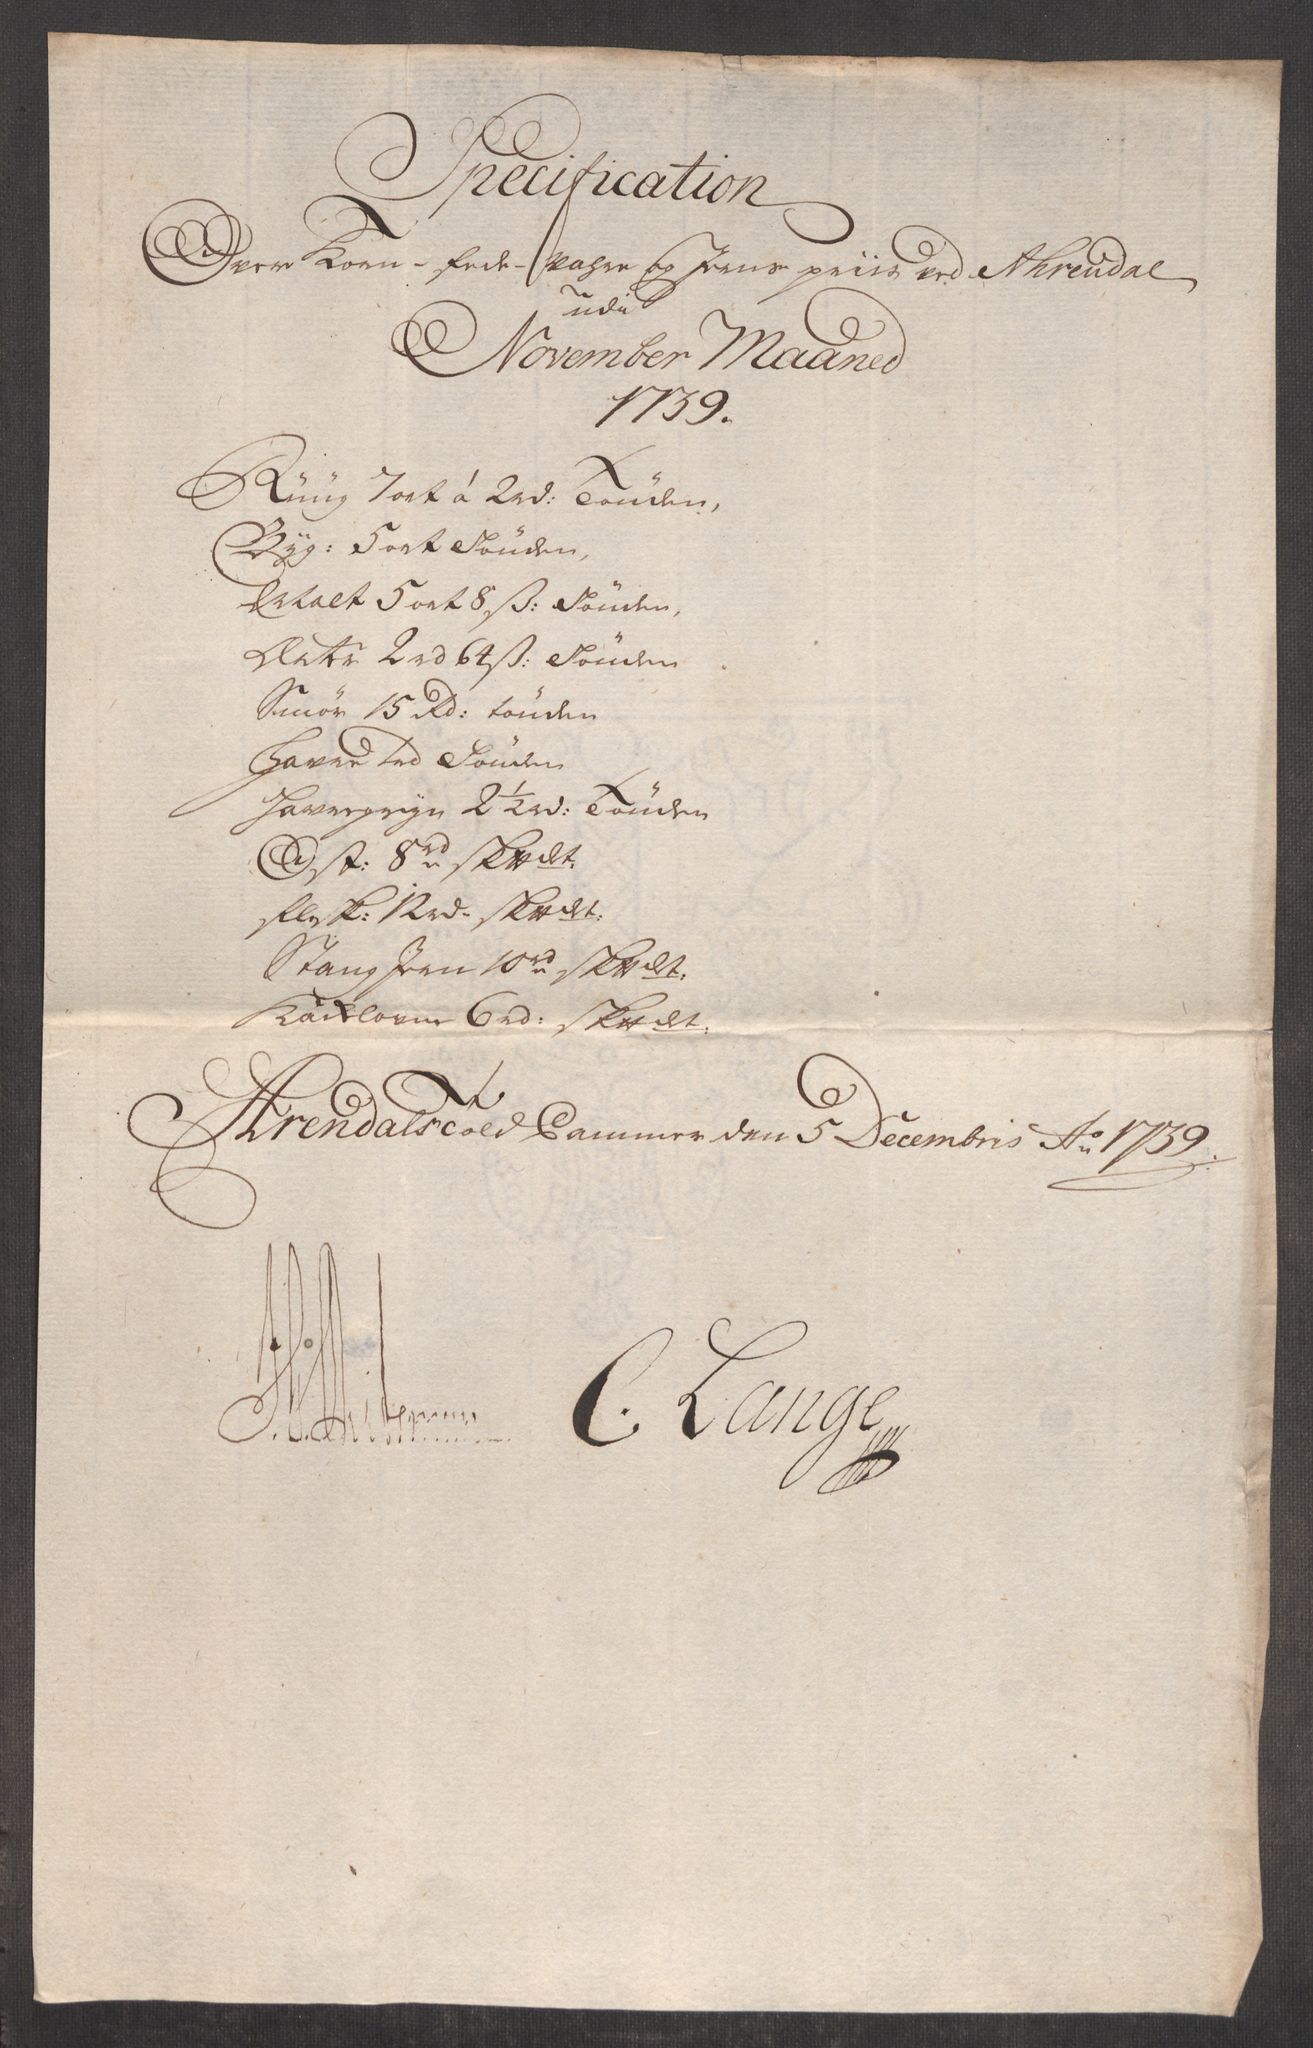 Specification
Over Korn- fede- vahre og Jerns priis ved Ahrendal
udi
November Maaned
1739.
Rüüg 7 ort á 2 rd: Tönden,
Byg: 5 ort Tönden,
5 ort 8 ß: Tönden,
Erter 2 rd 64 ß: Tönden
Smör 15 Rd: tönden
Haver 1 rd Tönden
Havergryn 2½ rd: Tönden
Ost: 8 rd sk℔dt:
flesk: 12 rd- sk℔dt:
Stang Jern 10 rd sk℔dt:
Kackelovne 6 rd: sk℔dt:
Arendals Told Cammer den 5 Decembris Ao 1739.
C. Lange